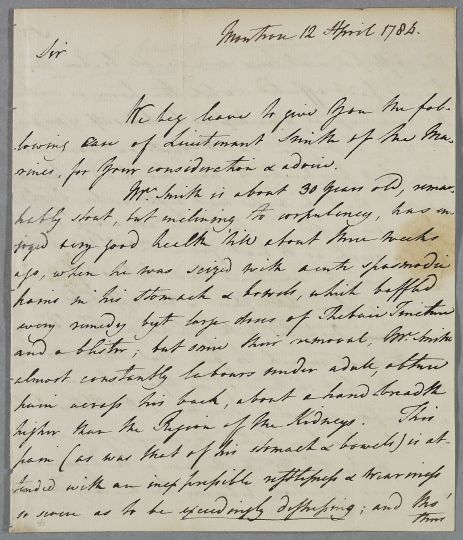 Montrose 12 April 1784.
Sir
We beg leave to give You the fol-
lowing case of Lieutenant Smith of the Ma-
rines, for Your consideration & advice.
Mr. Smith is about 30 Years old, remar-
kably stout, but inclining to corpulency, has en-
joyed very good health till about three weeks
ago, when he was seized with acute spasmodic
pains in his stomach & bowels, which baffled
every remedy but large doses of Thebaic Tincture
and a blister; but since their removal, Mr. Smith
almost constantly labours under a dull, obtuse
pain across his back, about a hand breadth
higher than the Region of the Kidneys. This
pain (as was that of his stomach & bowels) is at-
tended with an inexpressible restlessness & weariness
so severe as to be exceedingly distressing; and tho'